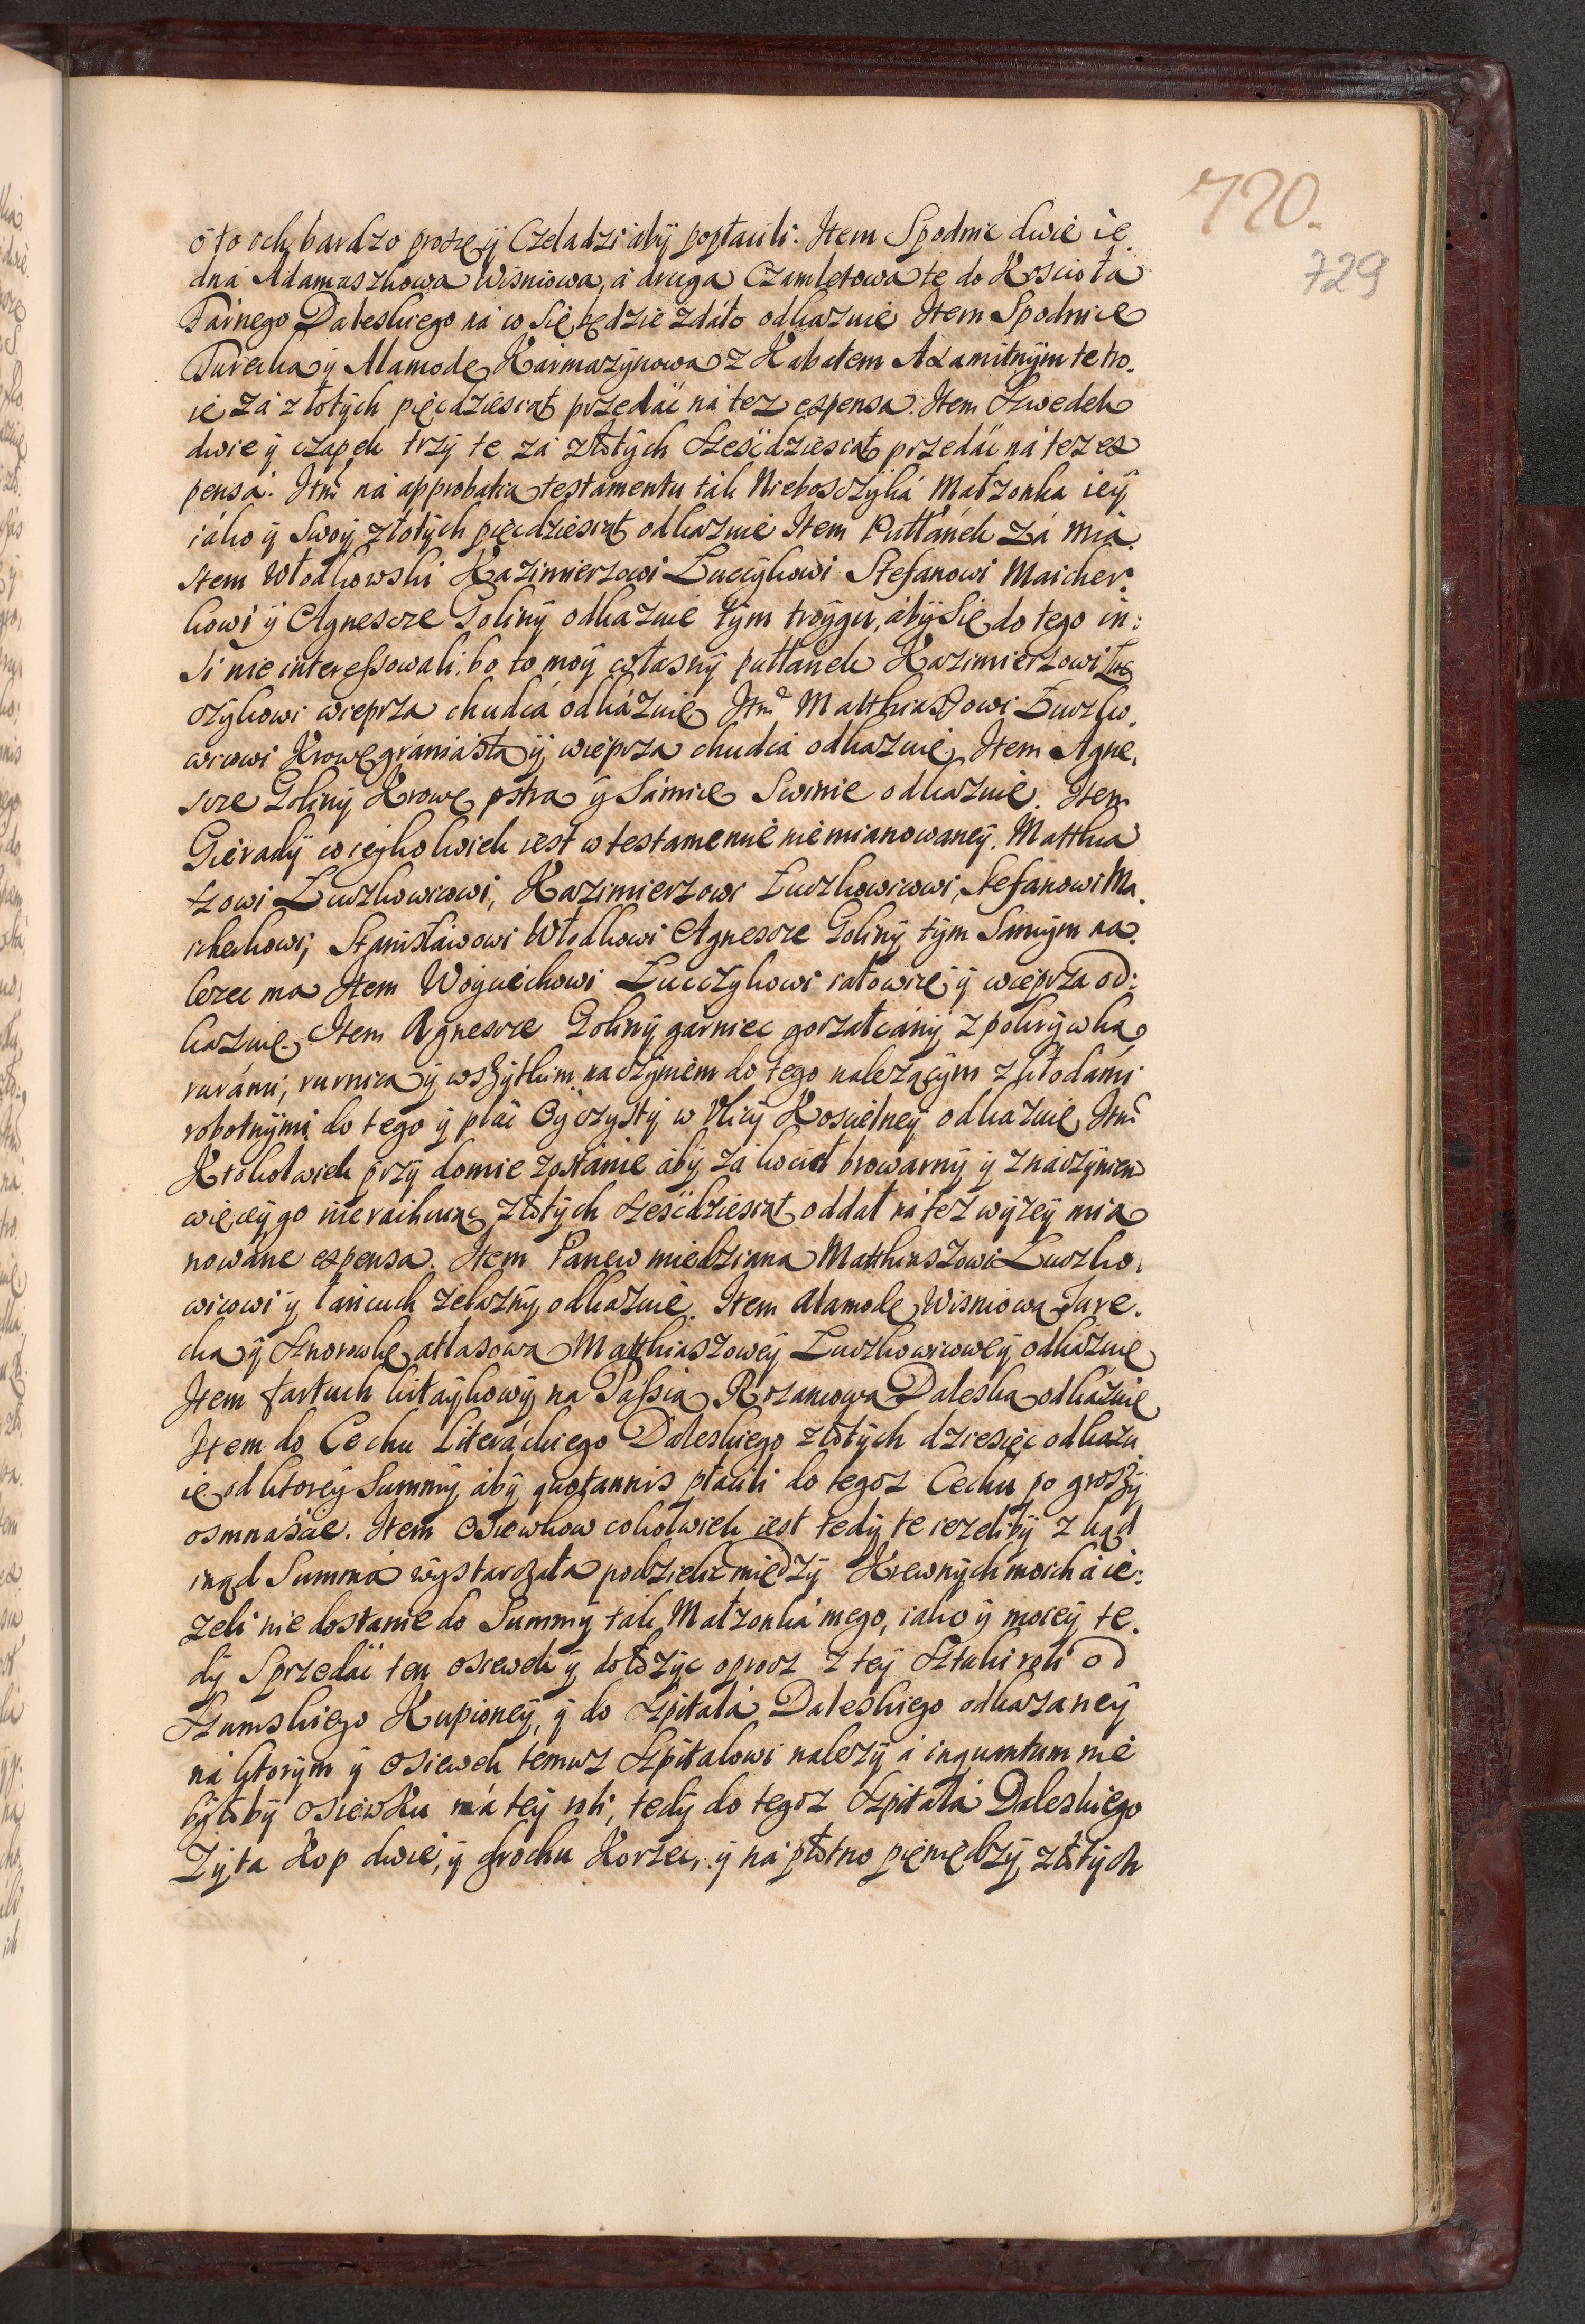 720.
729
o to och bardzo proszę ÿ Czeladzi abÿ popłacili. Item Spodnic dwie ie.
dna Adamaszkowa Wisniowa, á druga Czamletowa te do Koscioła
Farnego Daleskiego na co się będzie zdáło odkazuie Item Spodnice
Turecka ÿ Alamodę Karmazÿnowa z Kabatem Axamitnÿm te tro.
ie za złotÿch pięcdziesiąt przedac na tez expensa. Item Szwedek
dwie ÿ czapek trzÿ te za złotÿch szescdziesiat przedac na tez ex
pensa. Itm na approbatia testamentu tak Nieboszczÿka Małzonka ieÿ
iako ÿ Swoÿ złotÿch pięcdziesiąt odkazuie Item Pułłanek za mia.
stem Włodkowski Kazimierzowi Łucczÿkowi Stefanowi Maicher.
kowi ÿ Agnescze Golinÿ odkazuie tÿm troÿgu, abÿ się do tego in:
si nie interessowali, bo to moÿ własnÿ pułłanek Kazimierzowi Łuc
czÿkowi wieprza chudca odkázuię Itm Matthiaszowi Łuczko.
wicowi Krowę graniasta ÿ wieprza chudca odkazuię Item Agne.
scze Golinÿ Krowę pstra ÿ Samice Swinie odkazuie. Item
Gieradÿ co ieÿkolwiek iest w testamencie niemianowaneÿ, Matthia
szowi Łuczkowicowi, Kazimierzowi Łuczkowicowi, Stefanowi Ma.
icherkowi, Stanisławowi Włodkowi Agnescze Golinÿ tÿm Samÿm na.
lezec ma Item Woÿciechowi Łucczÿkowi iałowicę ÿ wieprza od:
kazuię. Item Agnescze Golinÿ garniec gorzałczánÿ z pokrÿwka
rurámi, rurnica ÿ wszÿtkim naczÿniem do tego nalezącÿm z kłodámi
robotnÿmi do tego ÿ plac Oÿczystÿ w Vlicÿ Koscielneÿ odkazuię Itm
Ktokolwiek przÿ domie zostánie abÿ za kocieł browarnÿ ÿ z naczÿniem
więceÿ go nie raichuiąc złotÿch szescdziesiąt oddał na tez wÿzeÿ mia
nowane expensa. Item Panew miedziana Matthiaszowi Łuczko.
wicowi ÿ łancuch zelaznÿ odkazuie. Item Alamodę Wisniowa Ture.
cka ÿ Sznorowkę atłasowa Matthiaszoweÿ Łuczkowicoweÿ odkázuię
Item fartuch kitaÿkowÿ na Passia Rozancowa Daleska odkázuię
Item do Cechu Literáckiego Daleskiego złotÿch dziesięc odkazu.
ię od ktoreÿ Summÿ abÿ quotannis płacili do tegoz Cechu po groszÿ
osmnascie. Item Osiewkow cokolwiek iest tedÿ te iezelibÿ z kąd
inąd Summa wÿstarczała podzielic międzÿ Krewnÿch moich á ie:
zeli nie dostanie do Summÿ tak Małzonká mego, iako ÿ moieÿ te.
dÿ Sprzedac ten osiewek ÿ dołozÿc oprocz z teÿ Sztuki roli od
Szumskiego Kupioneÿ, ÿ do Szpitala Daleskiego odkazaneÿ
ná ktorÿm ÿ Osiewek temuz Szpitalowi nalezÿ á inquantum nie
bÿłobÿ osiewku ná teÿ roli, tedÿ do tegoz Szpitalá Daleskiego
Zÿta Kop dwie, ÿ Grochu Korzec, ÿ na płotno pieniędzÿ złotÿch